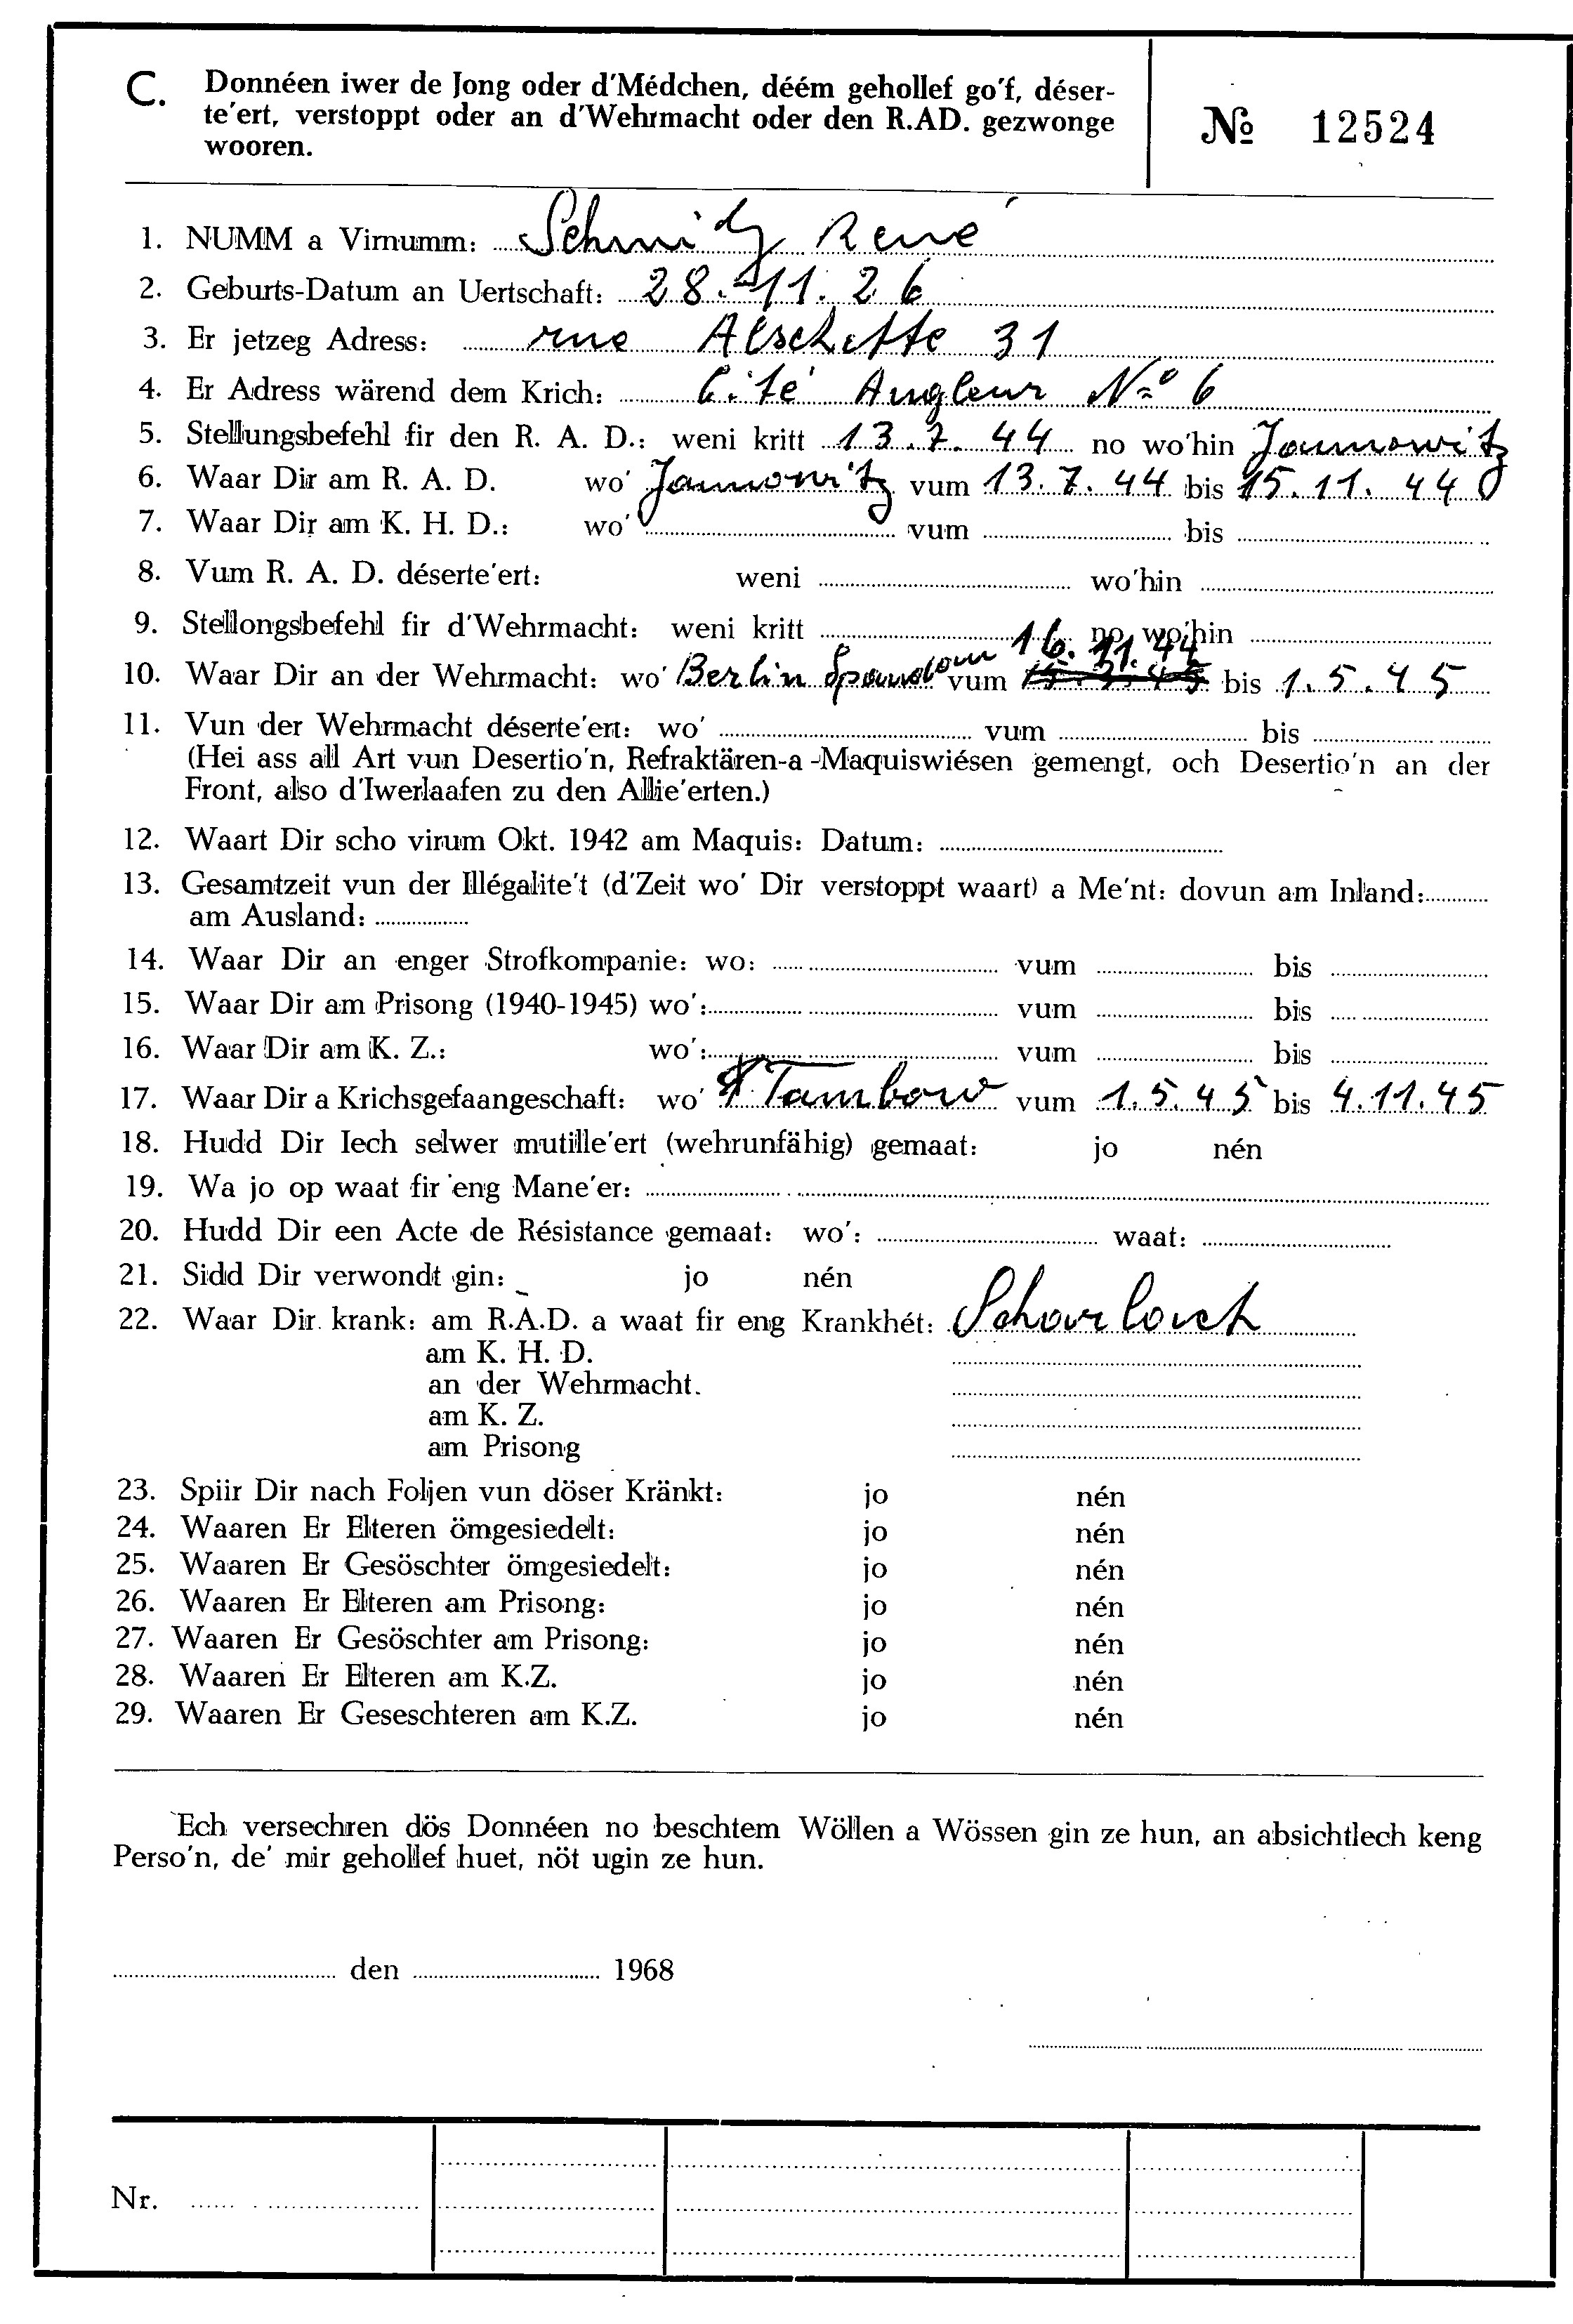 C. Donnéen iwer de Jong oder d'Médchen, déém gehollef go'f, déser-
te'ert, verstoppt oder an d'Wehrmacht oder den R.AD. gezwonge
wooren.
№ 12524
1. NUMM a Virnumm: Schmitz René
2. Geburts-Datum an Uertschaft: 28.11.26
3. Er jetzeg Adress: rue Alschette 31
4. Er Adress wärend dem Krich: Cité Angleur No 6
5. Stellungsbefehl fir den R. A. D.: weni kritt 13.7.44 no wo'hin Jannowitz
6. Waar Dir am R. A. D. wo' Jannowitz vum 13.7.44 bis 15.11.44
7. Waar Dir am K. H. D.: wo' vum bis
8. Vum R. A. D. déserte'ert: weni wo'hin
9. Stellongsbefehl fir d'Wehrmacht: weni kritt no wo'hin
10. Waar Dir an der Wehrmacht: wo' Berlin Spandau vum 16.11.44 bis 1.5.45
11. Vun der Wehrmacht déserte'ert: wo' vum bis
(Hei ass all Art vun Desertio'n, Refraktären-a -Maquiswiésen gemengt, och Desertio'n an der
Front, also d'Iwerlaafen zu den Allie'erten.)
12. Waart Dir scho virum Okt. 1942 am Maquis: Datum:
13. Gesamtzeit vun der Illégalite't (d'Zeit wo' Dir verstoppt waart) a Me'nt: dovun am Inland:
am Ausland:
14. Waar Dir an enger Strofkompanie: wo: vum bis
15. Waar Dir am Prisong (1940-1945) wo': vum bis
16. Waar Dir am K. Z.: wo': vum bis
17. Waar Dir a Krichsgefaangeschaft: wo' Tambow vum 1.5.45 bis 4.11.45
18. Hudd Dir Iech selwer mutille'ert (wehrunfähig) gemaat: jo nén
19. Wa jo op waat fir eng Mane'er:
20. Hudd Dir een Acte de Résistance gemaat: wo': waat:
21. Sidd Dir verwondt gin: jo nén
22. Waar Dir krank: am R.A.D. a waat fir eng Krankhét: Scharlach
am K. H. D.
an der Wehrmacht.
am K. Z.
am Prisong
23. Spiir Dir nach Foljen vun döser Kränkt: jo nén
24. Waaren Er Elteren ömgesiedelt: jo nén
25. Waaren Er Gesöschter ömgesiedelt: jo nén
26. Waaren Er Elteren am Prisong: jo nén
27. Waaren Er Gesöschter am Prisong: jo nén
28. Waaren Er Elteren am K.Z. jo nén
29. Waaren Er Geseschteren am K.Z. jo nén
Ech versechren dös Donnéen no beschtem Wöllen a Wössen gin ze hun, an absichtlech keng
Perso'n, de' mir gehollef huet, nöt ugin ze hun.
den 1968
Nr.